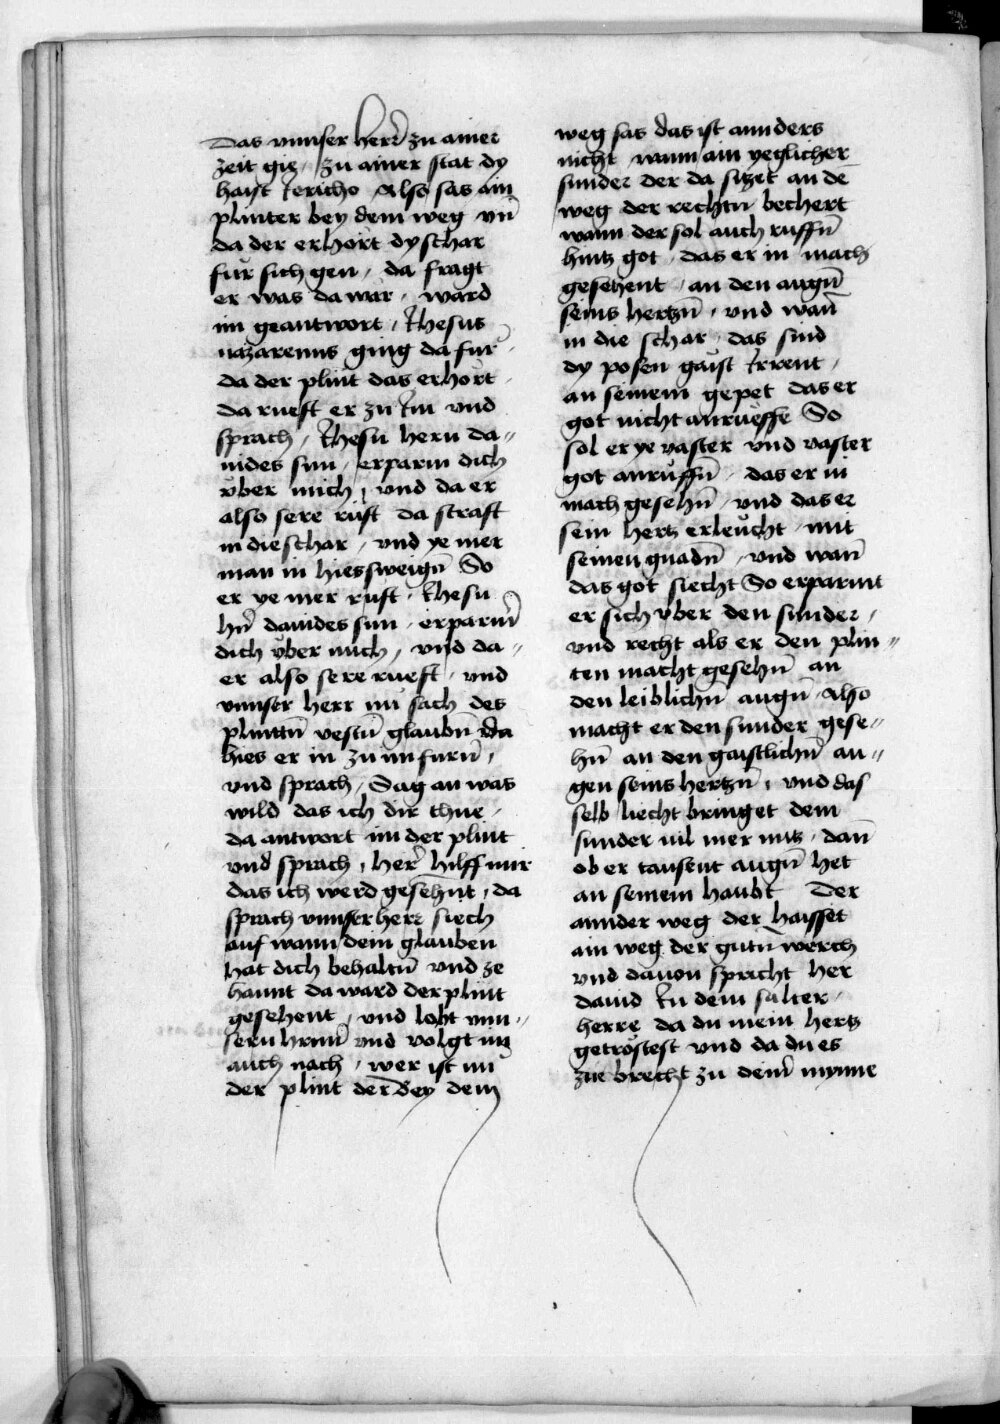 Das vnnser herr̄ zu ainer
zeit gig / zu ainer stat dy
haist Jericho Also sas ain
plinter bey dem weg vn̄
da der erhort dy schar
fúr sich gen / da fragt
er was da wár / ward
im geantwort / Jhesus
nazarenus ging da fúr /
da der plint das erhort
da rueft er zu Im vnd
sprach / Jhesu hern da〃
uides sun / erparm dich
v́ber mich / vnd da er
also sere rúft da straft
in die schar / vnd ye mer
man in hies sweign̄ So
er ye mer rúft / Jhesu
hn̄ dauides sun / erparm̄
dich v́ber mich / vnd da〃
er also sere rueft / vnd
vnnser herr nu sach des
plintn̄ vestn̄ glaubn̄ da
hies er in zu im furn̄ /
vnd sprach / Sag an was
wild das ich dir thue /
da antwort im der plint
vnd sprach / her̄ hilff mir
das ich werd gesehnt / da
sprach vnnser herr siech
auf wann dein glauben
hat dich behaltn̄ vnd ze
hannt da ward der plint
gesehent / vnd lobt vnn〃
sern hrnn̄ vnd volgt im
auch nach / wer ist nu
der plint der bey dem
weg sas das ist annders
nicht / wann ain yeglicher
sunder der da sitzet an de
weg der rechtn̄ bechert
wann der sol auch ruffn̄
hintz got / das er in mach
gesehent / an den augn̄
seins hertzn̄ / vnd wan̄
in die schar / das sind
dy posen gaist Irrent /
an seinem gepet das er
got nicht anrueffe So
sol er ye vaster vnd vaster
got anrúffn̄ / das er in
mach gesehn̄ / vnd das er
sein hertz erleucht / mit
seinen gnadn̄ / vnd wan̄
das got siecht So erparmt
er sich v́ber den sunder /
vnd recht als er den plin〃
ten macht gesehn̄ an
den leiblichn̄ augn̄ / Also
macht er den sunder gese〃
hn̄ an den gaistlichn̄ au〃
gen seins hertzn̄ / vnd das
selb liecht bringet dem
sunder vil mer nutz / dan̄
ob er tausent augn̄ het
an seinem haubt Der
annder weg der haisset
ain weg der gutn̄ werch
vnd dauon spricht her
dauid In dem salter /
herre da du mein hertz
getrostest vnd da du es
zue brecht zu dein̄ mynne